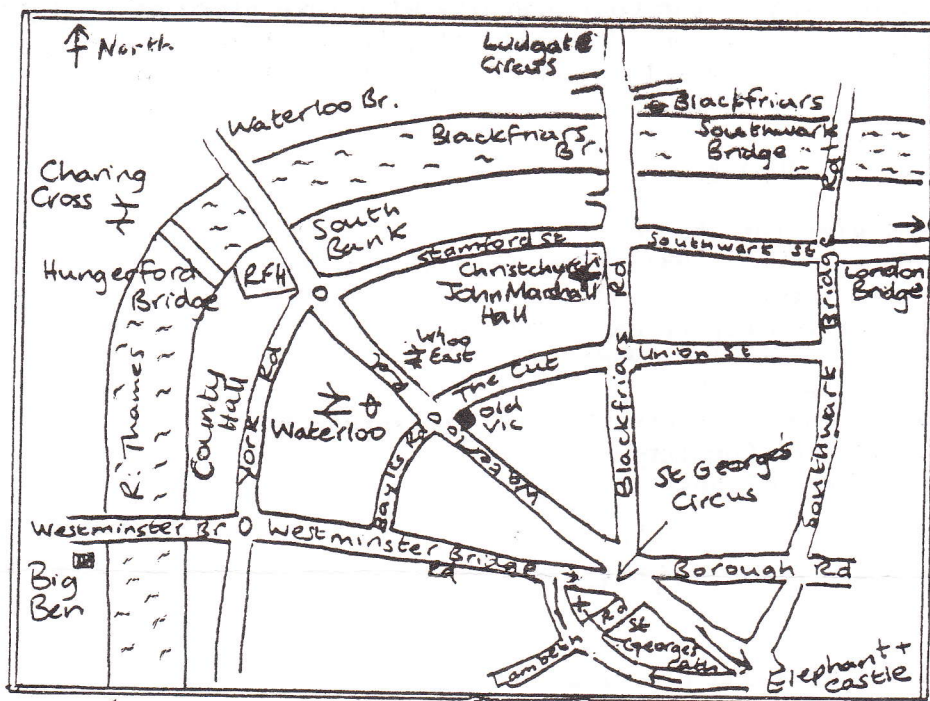 North
Ludgate
Circus
Waterloo Br.
Blackfriars
Br.
Blackfriars
Southwark
Bridge
Charing
Cross
South
Bank
Stamford St
Southwark St
Hungerford
Bridge
RFH
Christchurch
John Marshall
Hall
London
Bridge
R. Thames
County
Hall
York Rd
W'loo
East
Rd
The Cut
Union St
Blackfriars Rd
Southwark Bridge Rd
Waterloo
Old
Vic
Baylis Rd
Waterloo
St George's
Circus
Westminster Br
Westminster Bridge
Rd
Borough Rd
Big
Ben
Lambeth
Rd
St
Georges
Cath
Elephant +
Castle